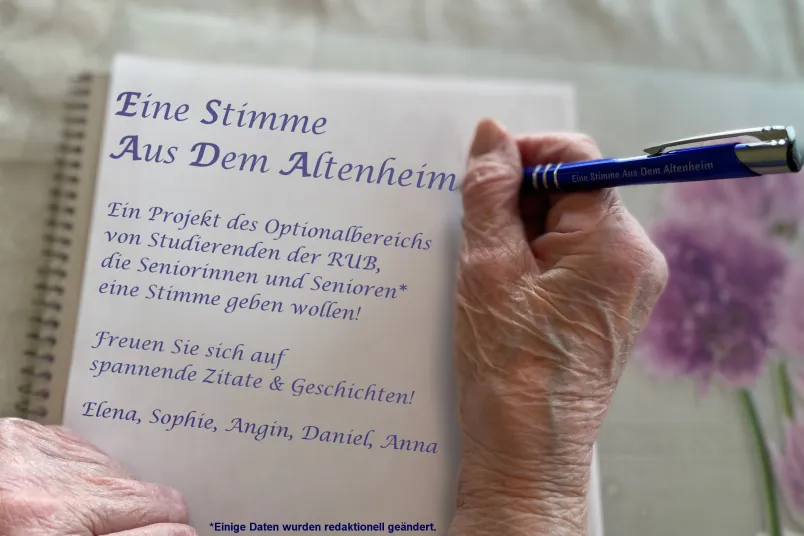 Eine Stimme
Aus Dem Altenheim
Ein Projekt des Optionalbereichs
von Studierenden der RUB,
die Seniorinnen und Senioren*
eine Stimme geben wollen!
Freuen Sie sich auf
spannende Zitate & Geschichten!
Elena, Sophie, Angin, Daniel, Anna
*Einige Daten wurden redaktionell geändert.
Eine Stimme Aus Dem Altenheim